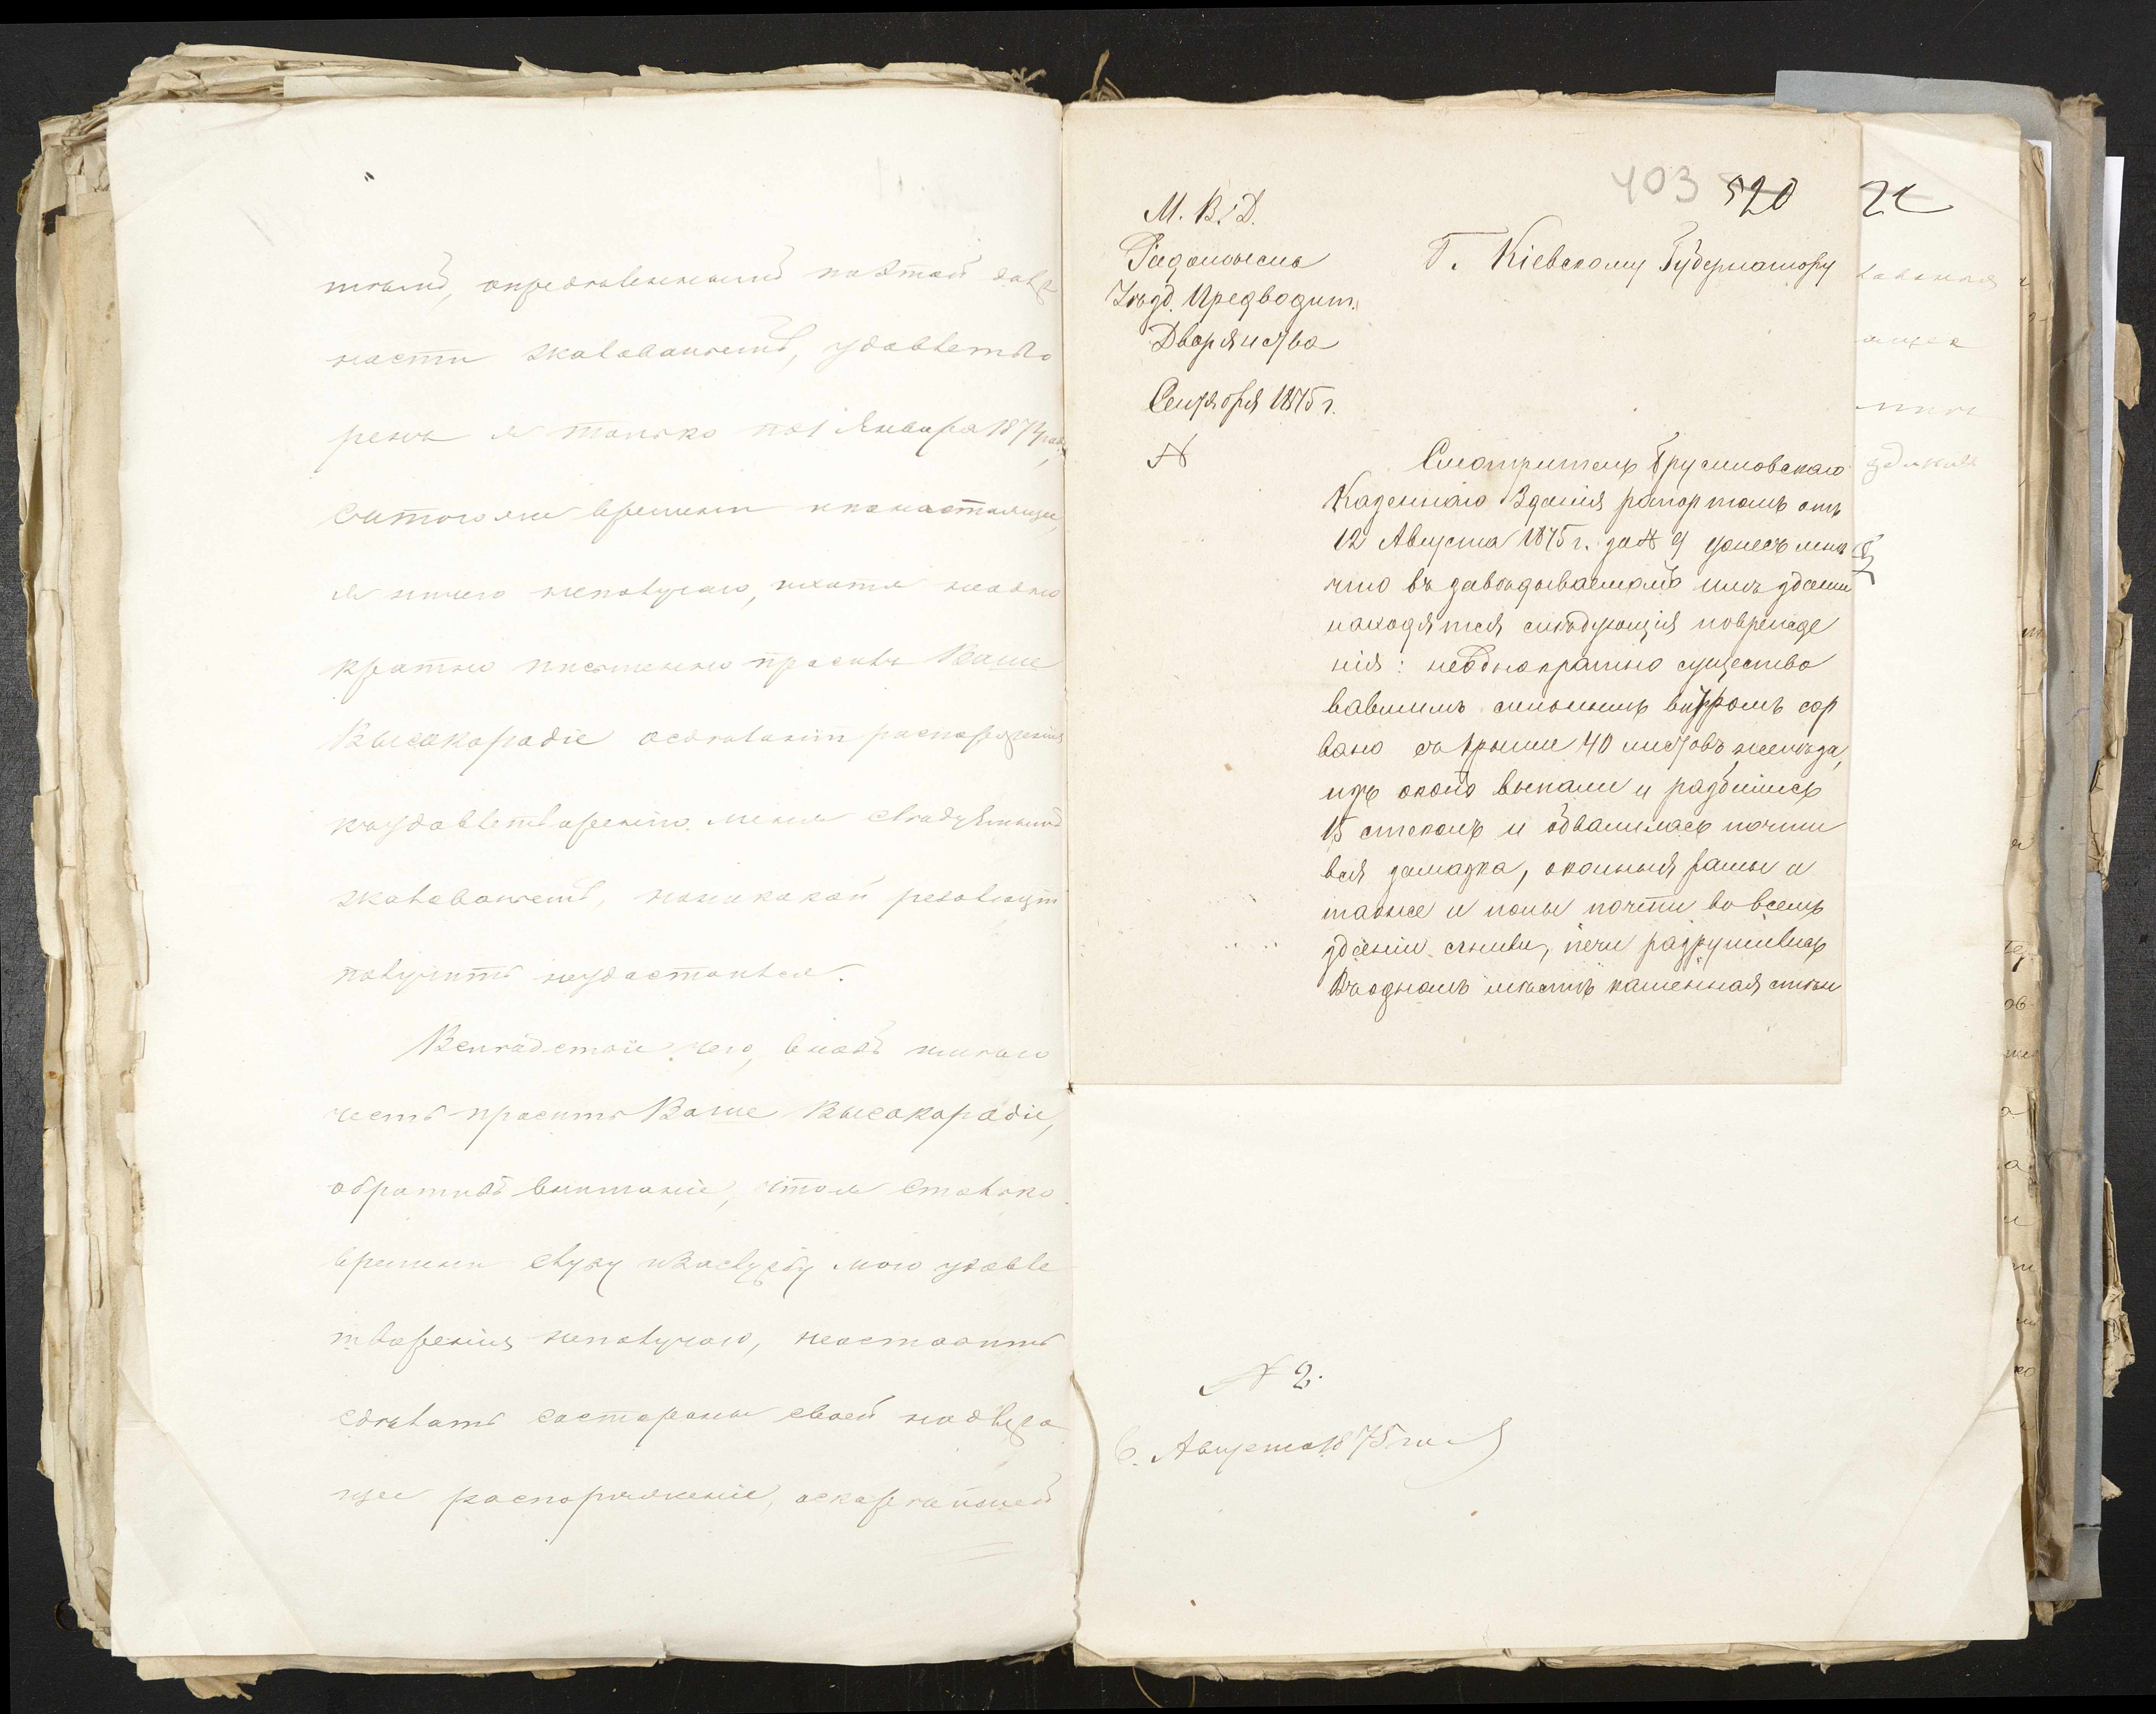 тнымъ, опредѣленнымъ поэтой долж
ности жалованьемъ, удовлетво
ренъ я только по 1 Января 1873 года,
Сытогоже времени ипонастоящее,
я ничего неполучаю, ихотя неодно
кратно письменно просилъ Ваше
Высокородіе осдѣланіи распоряженія
к
жалованьемъ, ноникакой резолюціи
получить неудостоился.
Вслѣдствіе чего, вновь имѣю
честь просить Ваше Высокородіе,
обратить вниманіе, что я Столько
времени служу мою удовле
творенія неполучаю,
сдѣлать состороны своей надлежа
щее распоряженіе, оскорѣйшей
403 520
М. В. Д.
Радомысль
Уѣзд. Предводит.
Дворянства
Сентября 1875 г.
№
Г. Кіевскому Губернатору
Смотритель Брусиловскаго
Казеннаго Зданія рапортомъ отъ
12 Августа 1875 г. за № 9 донесъ мнѣ
что въ завѣдываемомъ имъ зданіи
находятся слѣдующія поврежде
нія: неоднократно существо
вавшимъ сильнымъ вѣтромъ сор
вано съ крыши 40 листовъ желѣза,
изъ оконъ выпали и разбились
15 стеколъ и обвалилась почти
вся замазка, оконныя рамы а
также и полы почти во всемъ
зданіи сгнили, печи разрушились
Въ одномъ мѣстѣ каменная стѣн
№ 2.
6. Августа 1875 года